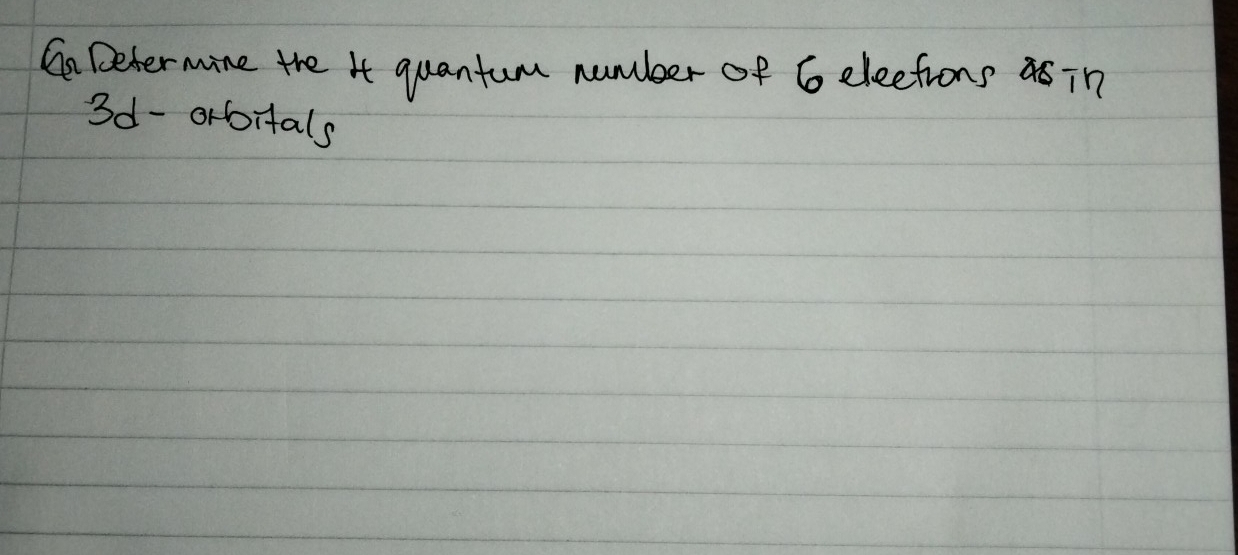 Qn Determine the 4 quantum number of 6 electrons as in
3d - orbitals